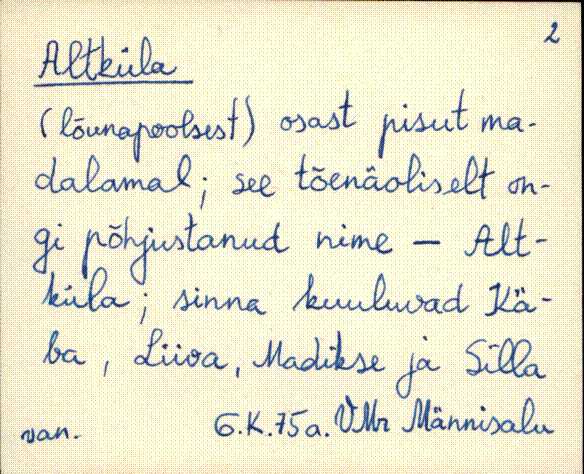 2
Altküla
(lõunapoolsest) osast pisut ma-
dalamal; see tõenäoliselt on-
gi põhjustanud nime — Alt-
küla; sinna kuuluvad Kä-
ba, Liiva, Madikse ja Silla
van. G.K. 75a. VMr Männisalu